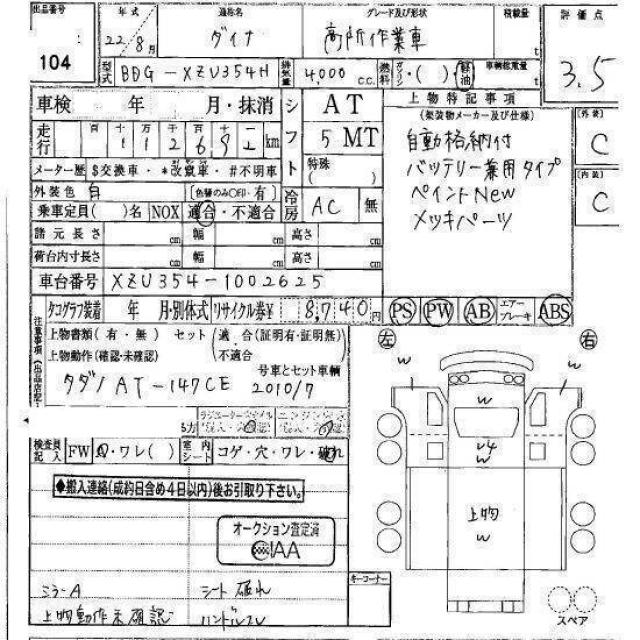 出品番号 年式 通称名 グレード及び形状 積載量 評価点
104 22/8月 ダイナ 高所作業車 t 3.5
型式 BDG-XZU354H 排気量 4,000 c.c. 燃料 ガソリン・( )・軽油 車輌総重量 t
車検 年 月・抹消 シフト AT 上物特記事項 [外装]
(架装物メーカー及び仕様) C
走行 百 十 万 千 百 十 km 5 MT 自動格納付
1 1 2 6 9 2 バッテリー兼用タイプ [内装]
メーター歴 $交換車・*改竄車・#不明車 特殊( ) ペイントNew C
外装色 白 [色替のみ○印・有] 冷房 AC 無 メッキパーツ
乗車定員( )名 NOX 適合・不適合
諸元長さ cm 幅 cm 高さ cm
荷台内寸長さ cm 幅 cm 高さ cm
車台番号 XZU354-1002625
タコグラフ装着 年 月・別体式 リサイクル券¥ 8,740円 PS PW AB エアーブレーキ ABS
注意事項(出品店記
上物書類(有・無) セット(適合(証明有・証明無) 左 右
上物動作(確認・未確認) 不適合 w w
号車とセット車輌
タダノ AT-147CE 2010/7 w
検査員記入 FW ・ワレ( ) 室内シート コゲ・穴・ワレ・破れ w
◆搬入連絡(成約日含め4日以内)後お引取り下さい。
上物
オークション査定済 w
AA
ミラーA シート破れ キーコーナー
上物動作未確認 ハンドルスレ スペア